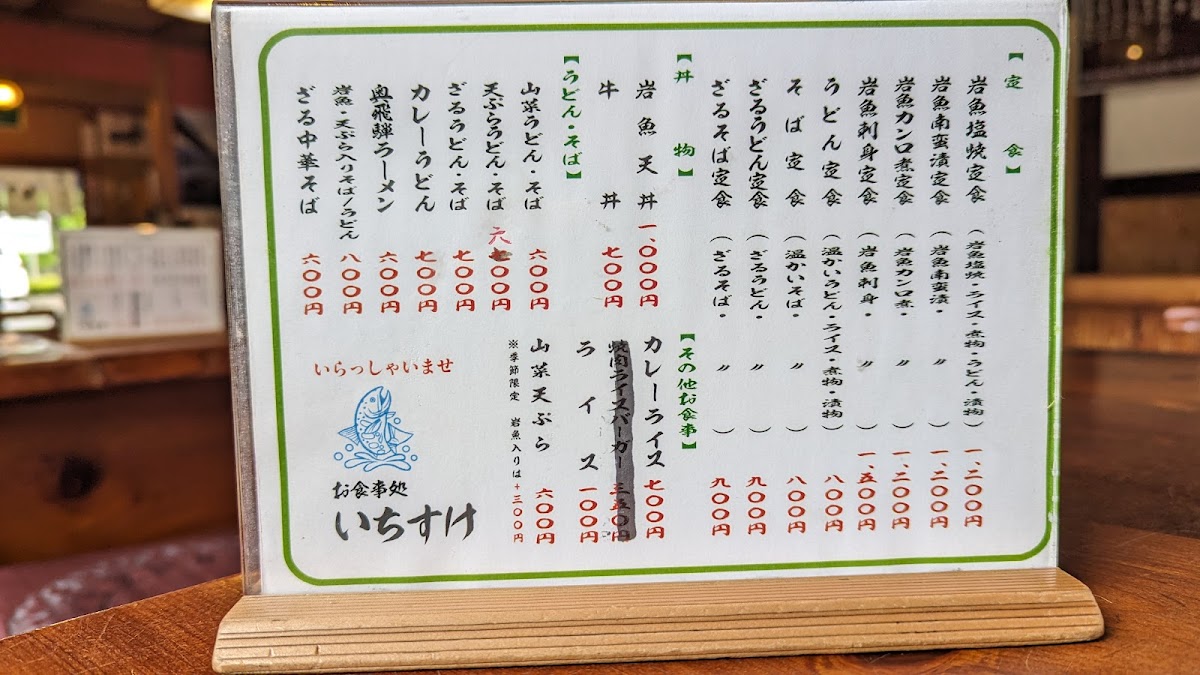 【定食】
岩魚塩焼定食（岩魚塩焼・ライス・煮物・うどん・漬物）一、二〇〇円
岩魚南蛮漬定食（岩魚南蛮漬・〃）一、二〇〇円
岩魚カンロ煮定食（岩魚カンロ煮・〃）一、二〇〇円
岩魚刺身定食（岩魚刺身・〃）一、五〇〇円
うどん定食（温かいうどん・ライス・煮物・漬物）八〇〇円
そば定食（温かいそば・〃）八〇〇円
ざるうどん定食（ざるうどん・〃）九〇〇円
ざるそば定食（ざるそば・〃）九〇〇円
【丼物】
岩魚天丼 一、〇〇〇円
牛丼 七〇〇円
【うどん・そば】
山菜うどん・そば 六〇〇円
天ぷらうどん・そば 六〇〇円
ざるうどん・そば 七〇〇円
カレーうどん 七〇〇円
奥飛騨ラーメン 六〇〇円
岩魚・天ぷら入りそば/うどん 八〇〇円
ざる中華そば 六〇〇円
【その他お食事】
カレーライス 七〇〇円
焼肉ライスバーガー 三五〇円
ライス 一〇〇円
山菜天ぷら 六〇〇円
※季節限定 岩魚入りは+三〇〇円
いらっしゃいませ
お食事処
いちすけ